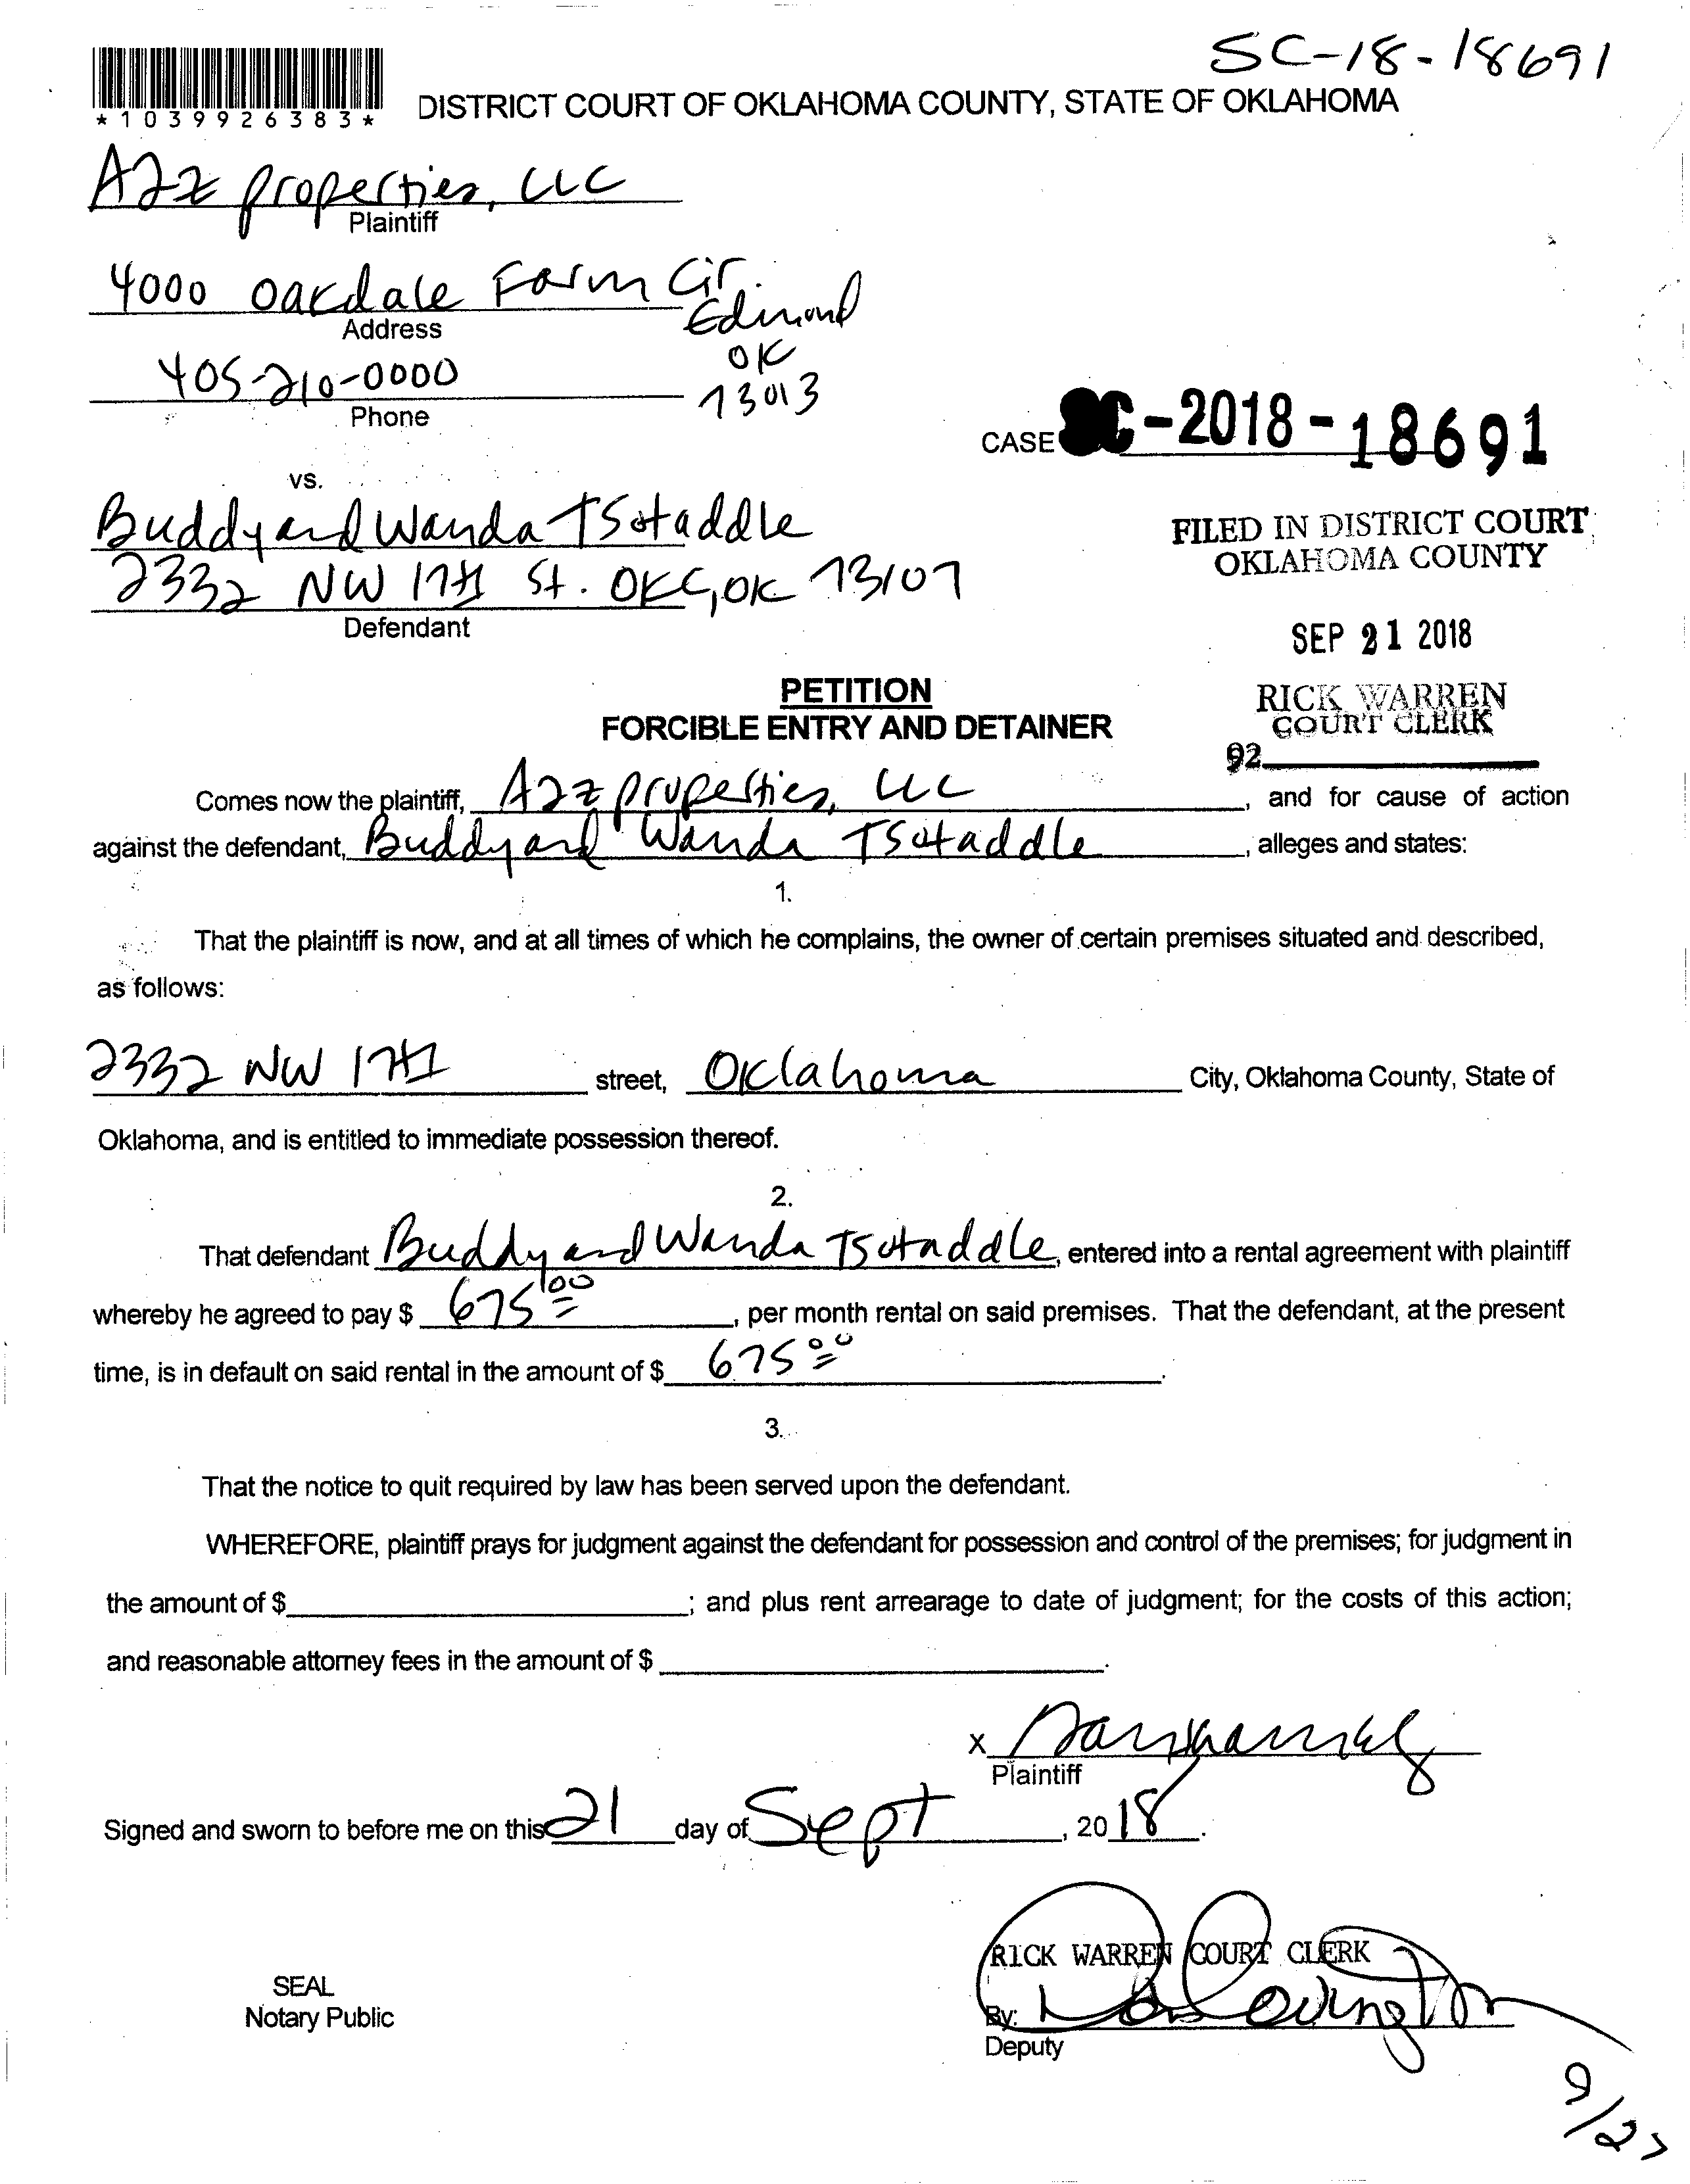 SC-18-18691
*1039926383*
DISTRICT COURT OF OKLAHOMA COUNTY, STATE OF OKLAHOMA
A2Z properties, LLC
Plaintiff
4000 Oakdale Farm Cir.
Edmond
Address
OK
405-210-0000
73013
Phone
CASE SC-2018-18691
vs.
Buddy and Wanda Tsotaddle
2332 NW 17th St. OKC, OK 73107
Defendant
FILED IN DISTRICT COURT
OKLAHOMA COUNTY
SEP 21 2018
RICK WARREN
COURT CLERK
92
PETITION
FORCIBLE ENTRY AND DETAINER
Comes now the plaintiff, A2Z properties, LLC, and for cause of action
against the defendant, Buddy and Wanda Tsotaddle, alleges and states:
1.
That the plaintiff is now, and at all times of which he complains, the owner of certain premises situated and described,
as follows:
2332 NW 17th street, Oklahoma City, Oklahoma County, State of
Oklahoma, and is entitled to immediate possession thereof.
2.
That defendant Buddy and Wanda Tsotaddle, entered into a rental agreement with plaintiff
whereby he agreed to pay $ 675.00, per month rental on said premises. That the defendant, at the present
time, is in default on said rental in the amount of $ 675.00.
3.
That the notice to quit required by law has been served upon the defendant.
WHEREFORE, plaintiff prays for judgment against the defendant for possession and control of the premises; for judgment in
the amount of $; and plus rent arrearage to date of judgment; for the costs of this action;
and reasonable attorney fees in the amount of $.
x
Plaintiff
Signed and sworn to before me on this 21 day of Sept, 2018.
RICK WARREN COURT CLERK
SEAL
Notary Public
By: Covington
Deputy
9/27